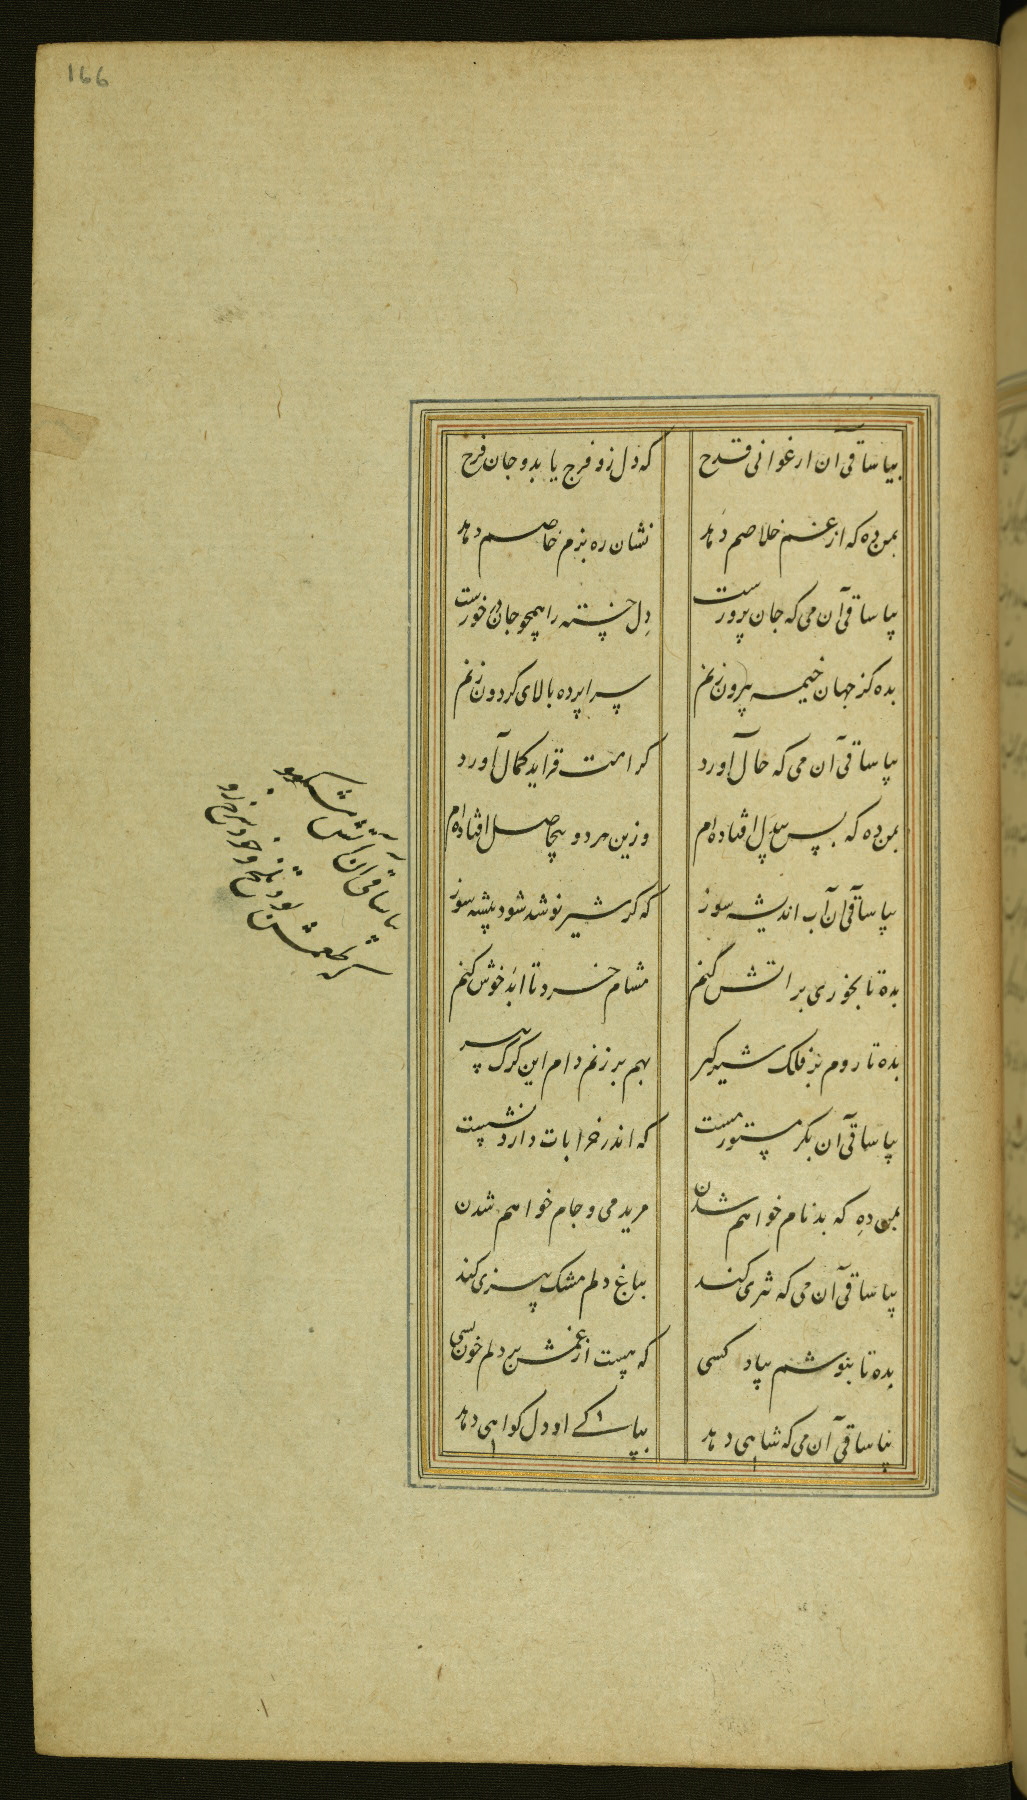 166
بیا ساقی آن ارغوانی قدح
که دل زو فرح یابد و جان فرح
بمن ده که از غم خلاصم دهد
نشان ره بزم خاصم دهد
بیا ساقی آن می که جان پرورست
دل خسته را همچو جان در خورست
بده کز جهان خیمه بیرون زنم
سراپرده بالای گردون زنم
بیا ساقی آن می که حال آورد
کرامت فزاید کمال آورد
بمن ده که بس بیدل افتاده ام
وزین هر دو بیحاصل افتاده ام
بیا ساقی آن آب اندیشه سوز
که گر شیر نوشد شود بیشه سوز
بده تا بخوری بر آتش کنم
مشام خرد تا ابد خوش کنم
بده تا روم بر فلک شیر گیر
بهم بر زنم دام این گرگ پیر
بیا ساقی آن بکر مستور مست
که اندر خرابات دارد نشست
بمن ده که بدنام خواهم شدن
مرید می و جام خواهم شدن
بیا ساقی آن می که کند
بباغ دلم مشک بیزی کند
بده تا بنوشم بیاد کسی
که هست از غمش بر دلم خون بسی
بیا ساقی آن می که شاهی دهد
بپاکی او دل گواهی دهد
بیا ساقی آن آتش
که طعمش بود تلخ و خود